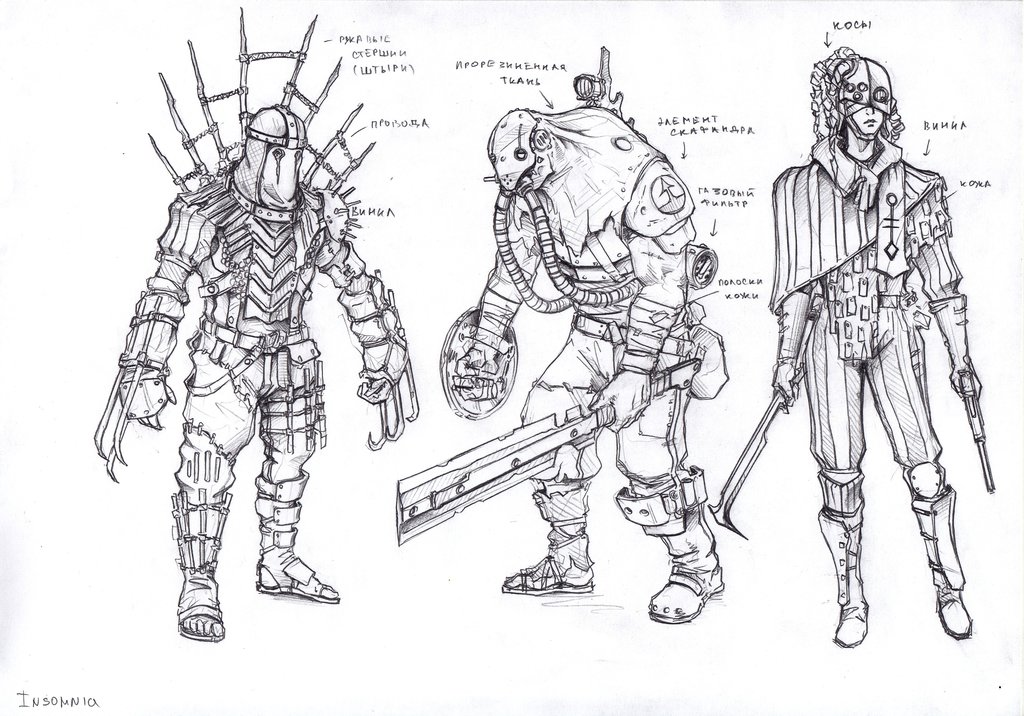 РЖАВЫЕ
СТЕРЖНИ
(ШТЫРИ)
ПРОВОДА
ВИНИЛ
ПРОРЕЗИНЕННАЯ
ТКАНЬ
ЭЛЕМЕНТ
СКАФАНДРА
ГАЗОВЫЙ
ФИЛЬТР
ПОЛОСКИ
КОЖИ
КОСЫ
ВИНИЛ
КОЖА
INSOMNIA